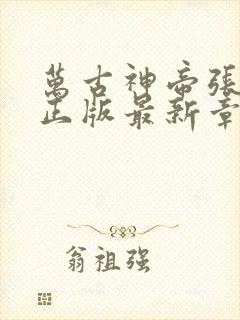 萬古神帝張
正版最新章
翁祖强